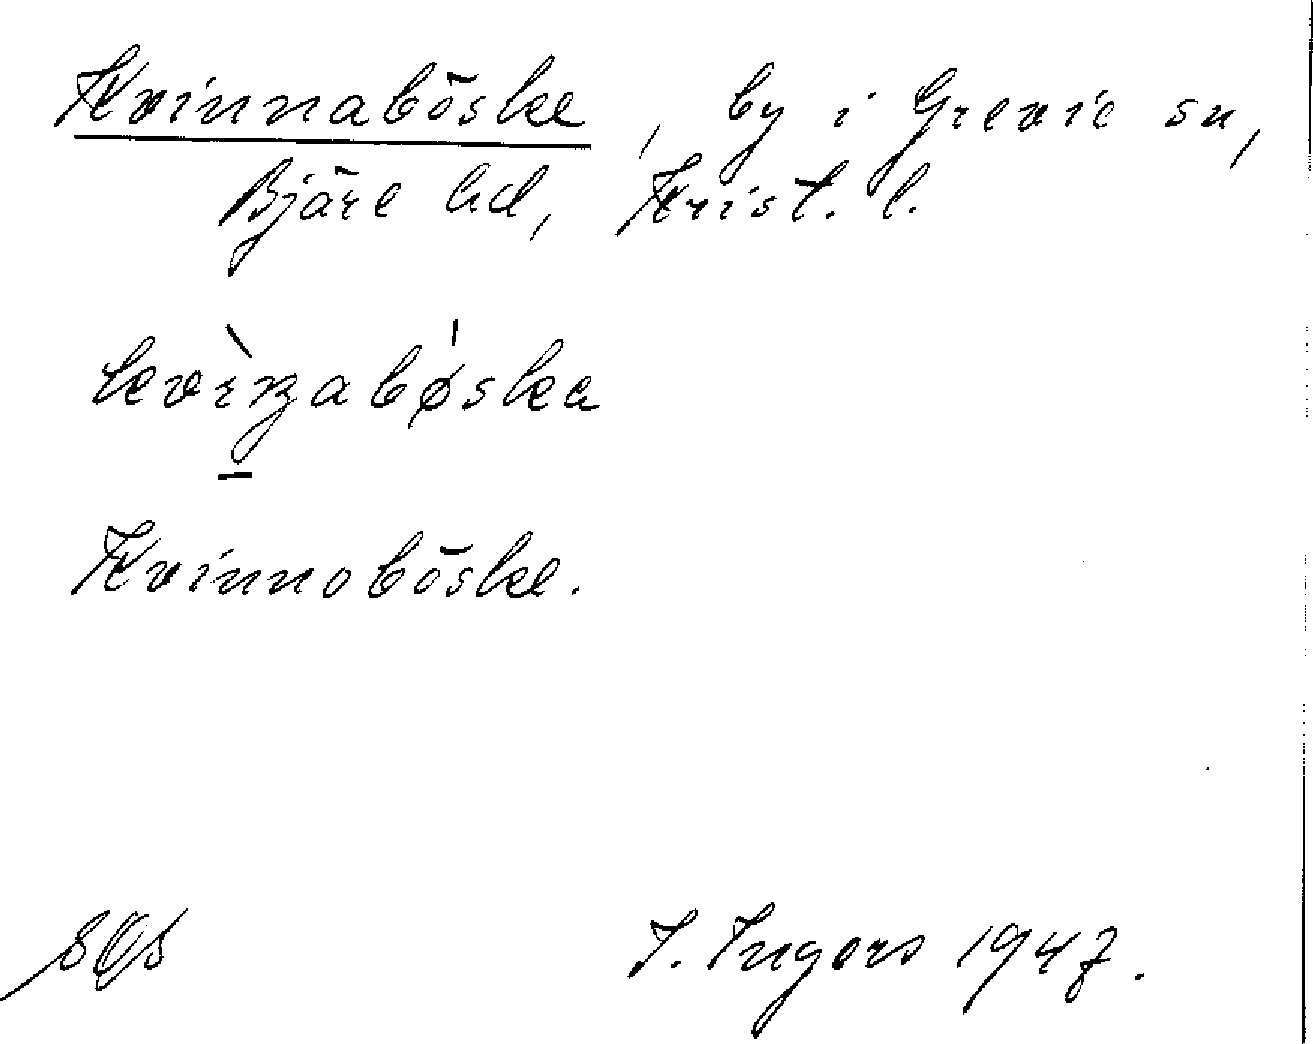 Kvinnaböske, by i Grevie sn,
Bjäre hd, Krist. l.
Kvinnoböske.
I. Ingers 1947.